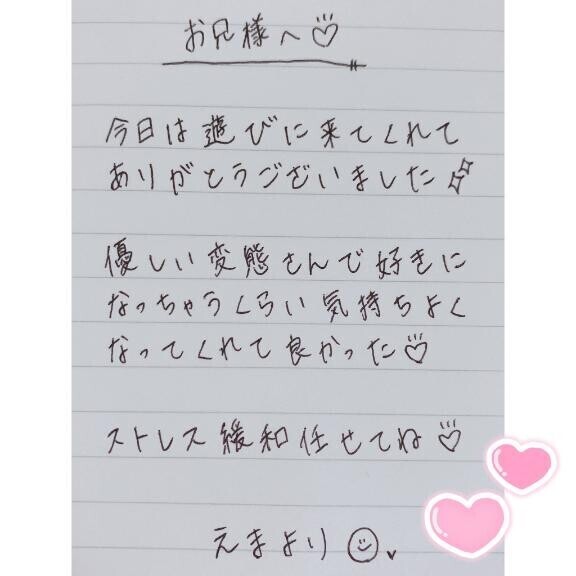 お兄様へ♡
今日は遊びに来てくれて
ありがとうございました✨
優しい変態さんで好きに
なっちゃうくらい気持ちよく
なってくれて良かった♡
ストレス緩和任せてね♡
えまより☺♥